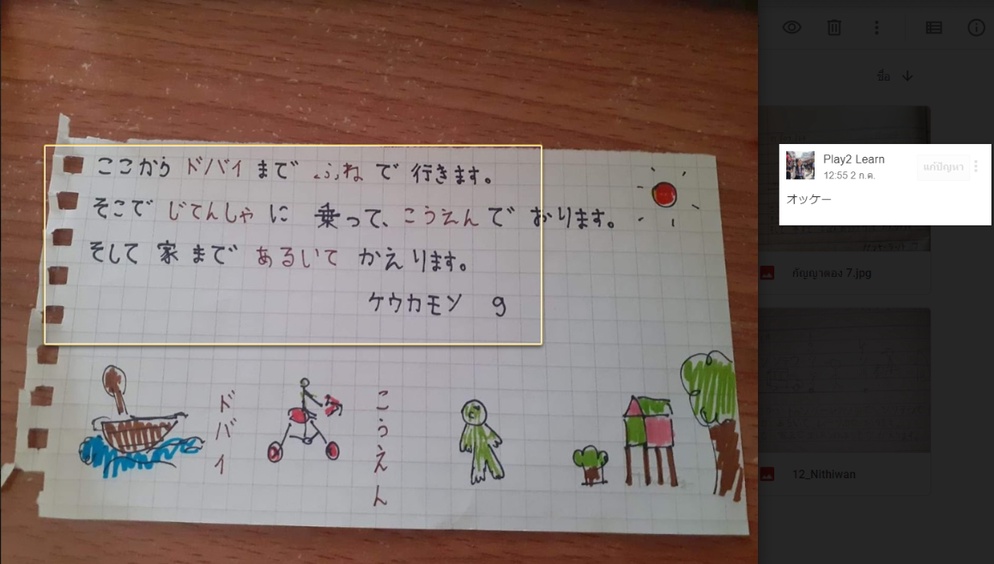 ここから ドバイ まで ふね で 行きます。
そこで じてんしゃ に 乗って、こうえん で おります。
そして 家 まで あるいて かえ ります。
ケウカモン 9
ドバイ
こうえん
ชื่อ
Play2 Learn
แก้ปัญหา
12:55 2 ก.ค.
オッケー
กัญญาดอง 7.jpg
12_Nithiwan